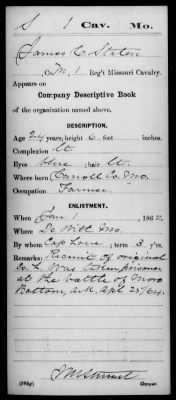 S 1 Cav. Mo.
James C Slaten
, Co. M, 1 Reg't Missouri Cavalry.
Appears on
Company Descriptive Book
of the organization named above.
DESCRIPTION.
Age 24 years; height 6 feet inches.
Complexion Lt
Eyes blue; hair Lt.
Where born Carroll Co, Mo.
Occupation Farmer
ENLISTMENT.
When Jan 1, 1862.
Where De Witt Mo.
By whom Cap Lowe; term 3 y'rs.
Remarks: Recruit of original
Co L. Was taken prisoner
at the battle of Moro
Bottom, Ark. Apl 25/64.
Copyist.